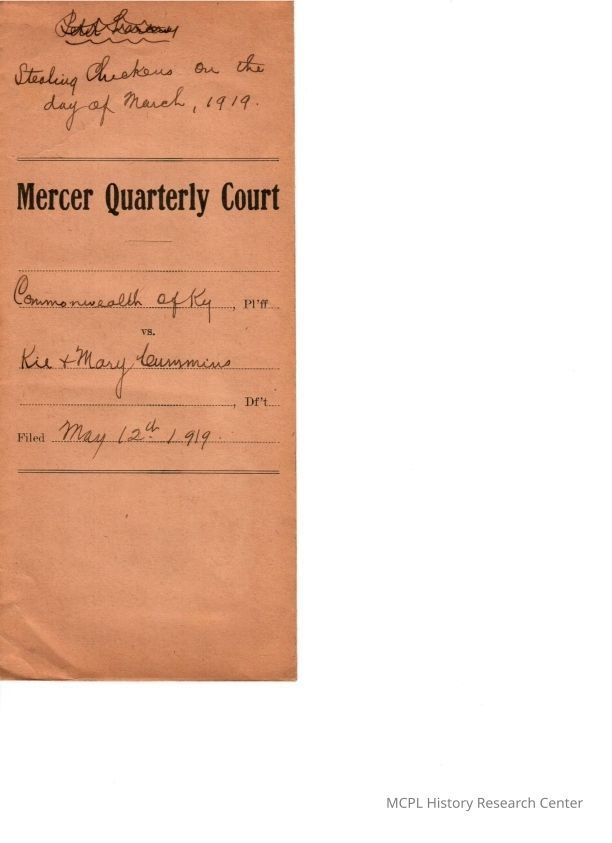 Stealing Chickens on the
day of March, 1919.
Mercer Quarterly Court
Commonwealth of Ky, Pl'ff
vs.
Kie + Mary Cummins
, Df't
Filed May 12th 1919.
MCPL History Research Center